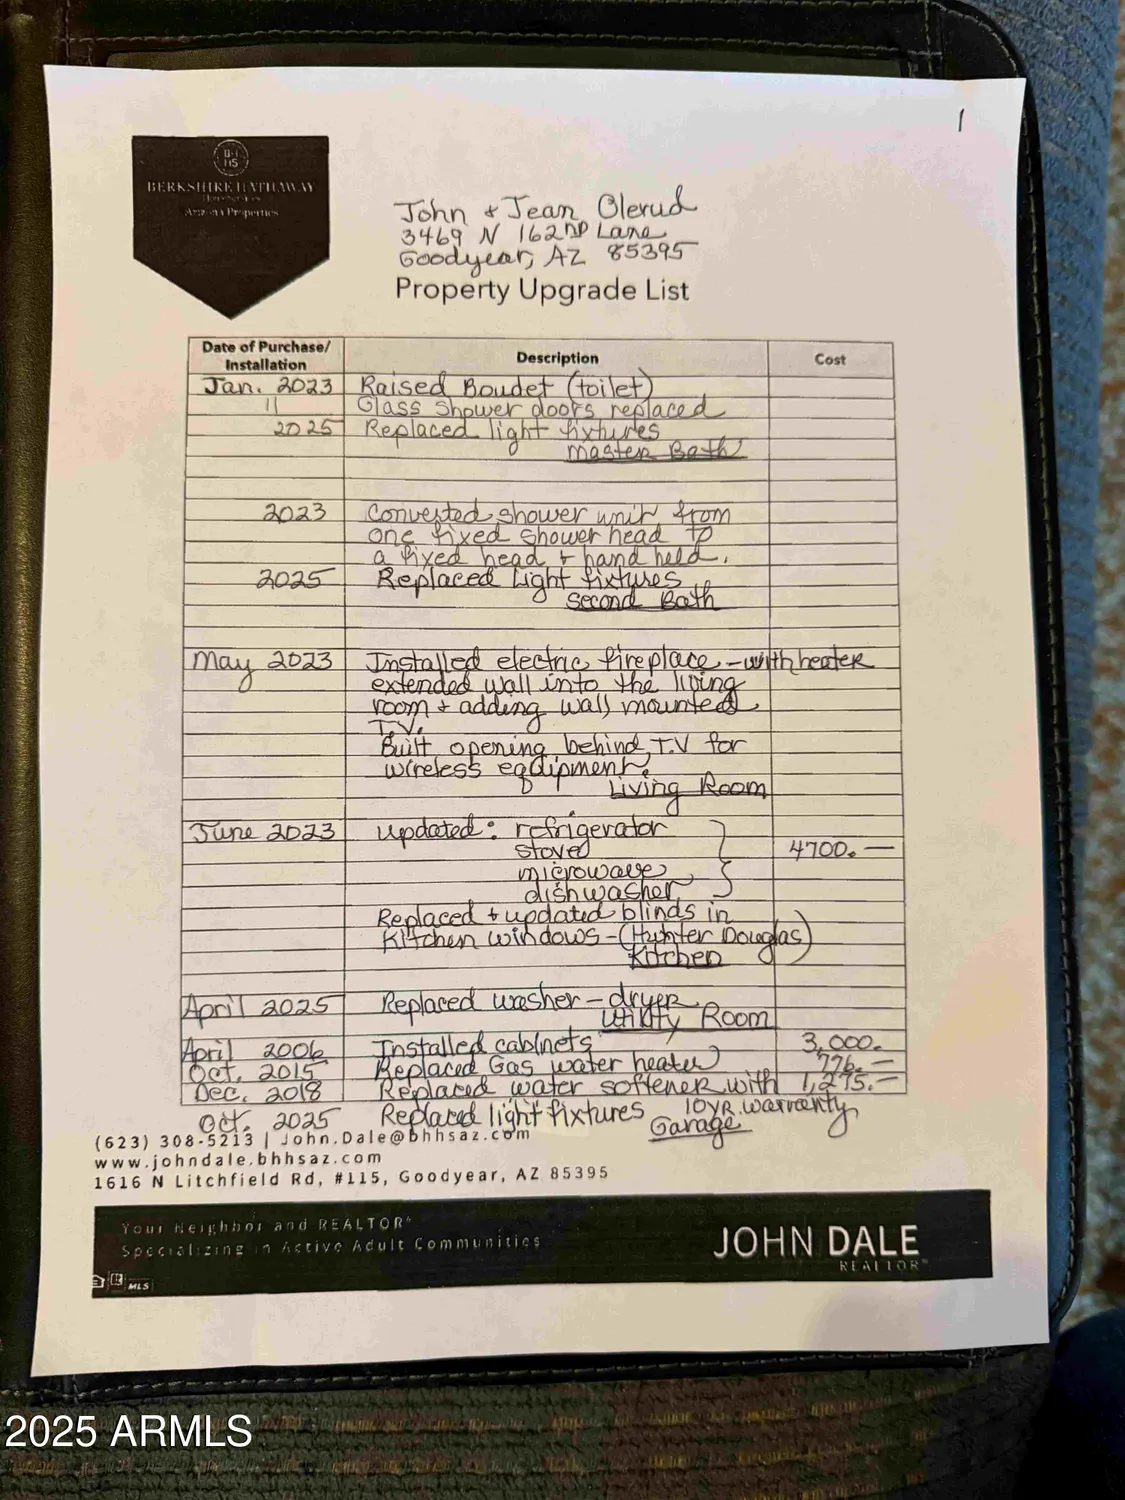 1
BHHS
BERKSHIRE HATHAWAY
HomeServices
Arizona Properties
John + Jean Olerud
3469 N 162ND Lane
Goodyear, AZ 85395
Property Upgrade List
Date of Purchase/ Installation Description Cost
Jan. 2023 Raised Boudet (toilet)
11 Glass shower doors replaced
2025 Replaced light fixtures
Master Bath
2023 Converted shower unit from
one fixed shower head to
a fixed head + hand held.
2025 Replaced Light fixtures
Second Bath
May 2023 Installed electric fireplace - with heater
extended wall into the living
room + adding wall mounted
T.V.
Built opening behind T.V for
wireless eqdipment.
Living Room
June 2023 updated: refrigerator
stove 4700.—
microwave
dishwasher
Replaced + updated blinds in
Kitchen windows - (Hunter Douglas)
Kitchen
April 2025 Replaced washer - dryer
Utility Room
April 2006 Installed cabinets 3,000.
Oct. 2015 Replaced Gas water heater 776.—
Dec. 2018 Replaced water softener with 1,275.—
10 YR. warranty
Oct. 2025 Replaced light fixtures
Garage
(623) 308-5213 | John.Dale@bhhsaz.com
www.johndale.bhhsaz.com
1616 N Litchfield Rd, #115, Goodyear, AZ 85395
Your Neighbor and REALTOR®
Specializing in Active Adult Communities
JOHN DALE
REALTOR®
MLS
2025 ARMLS